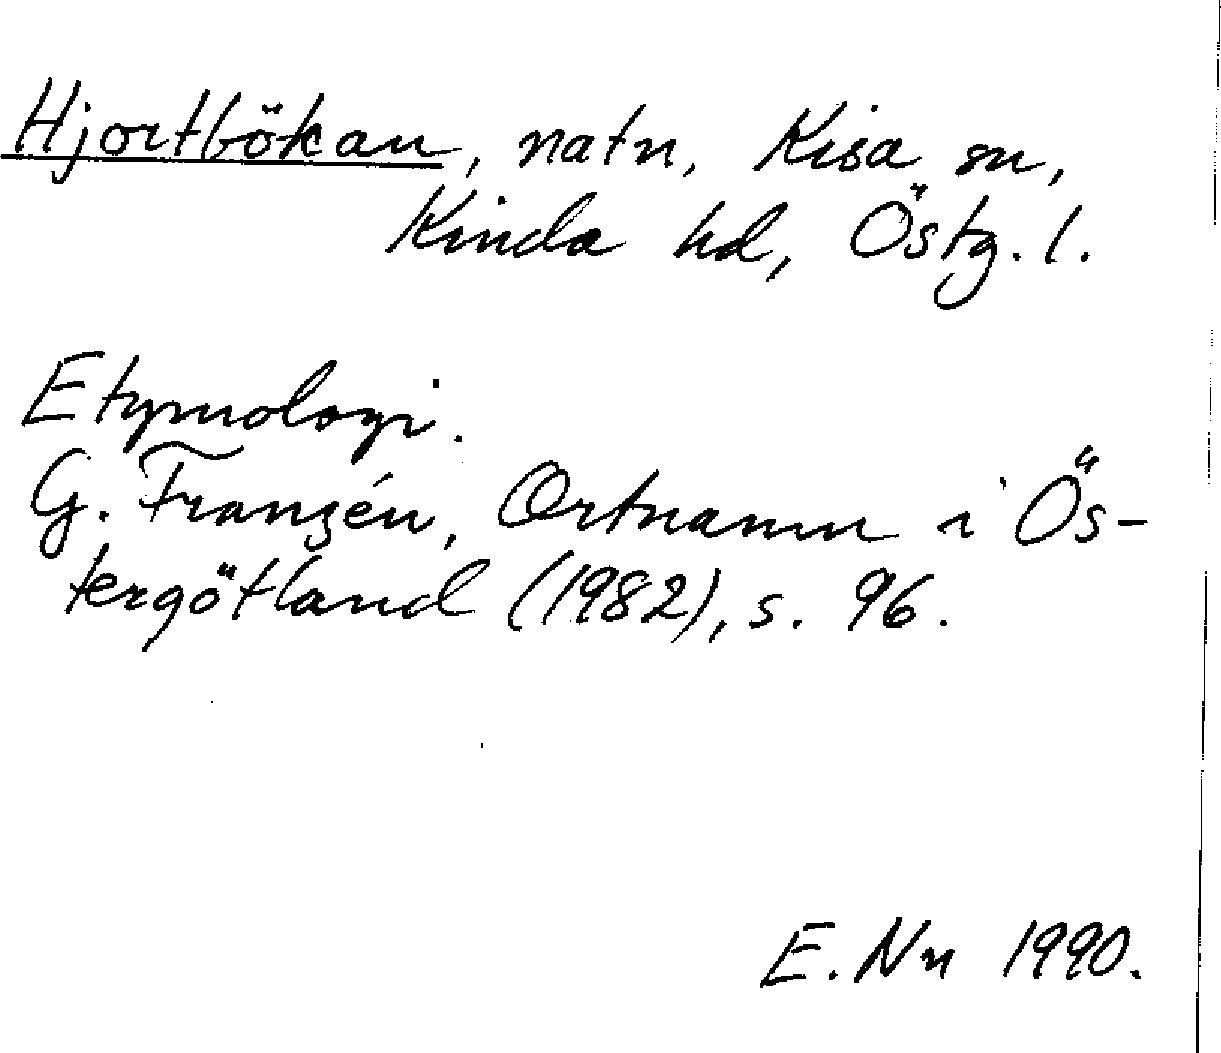 Hjortbökan, natn, Kisa sn,
Kinda hd, Östg. l.
Etymologi.
G. Franzén, Ortnamn i Ös-
tergötland (1982), s. 96.
E. Nn 1990.